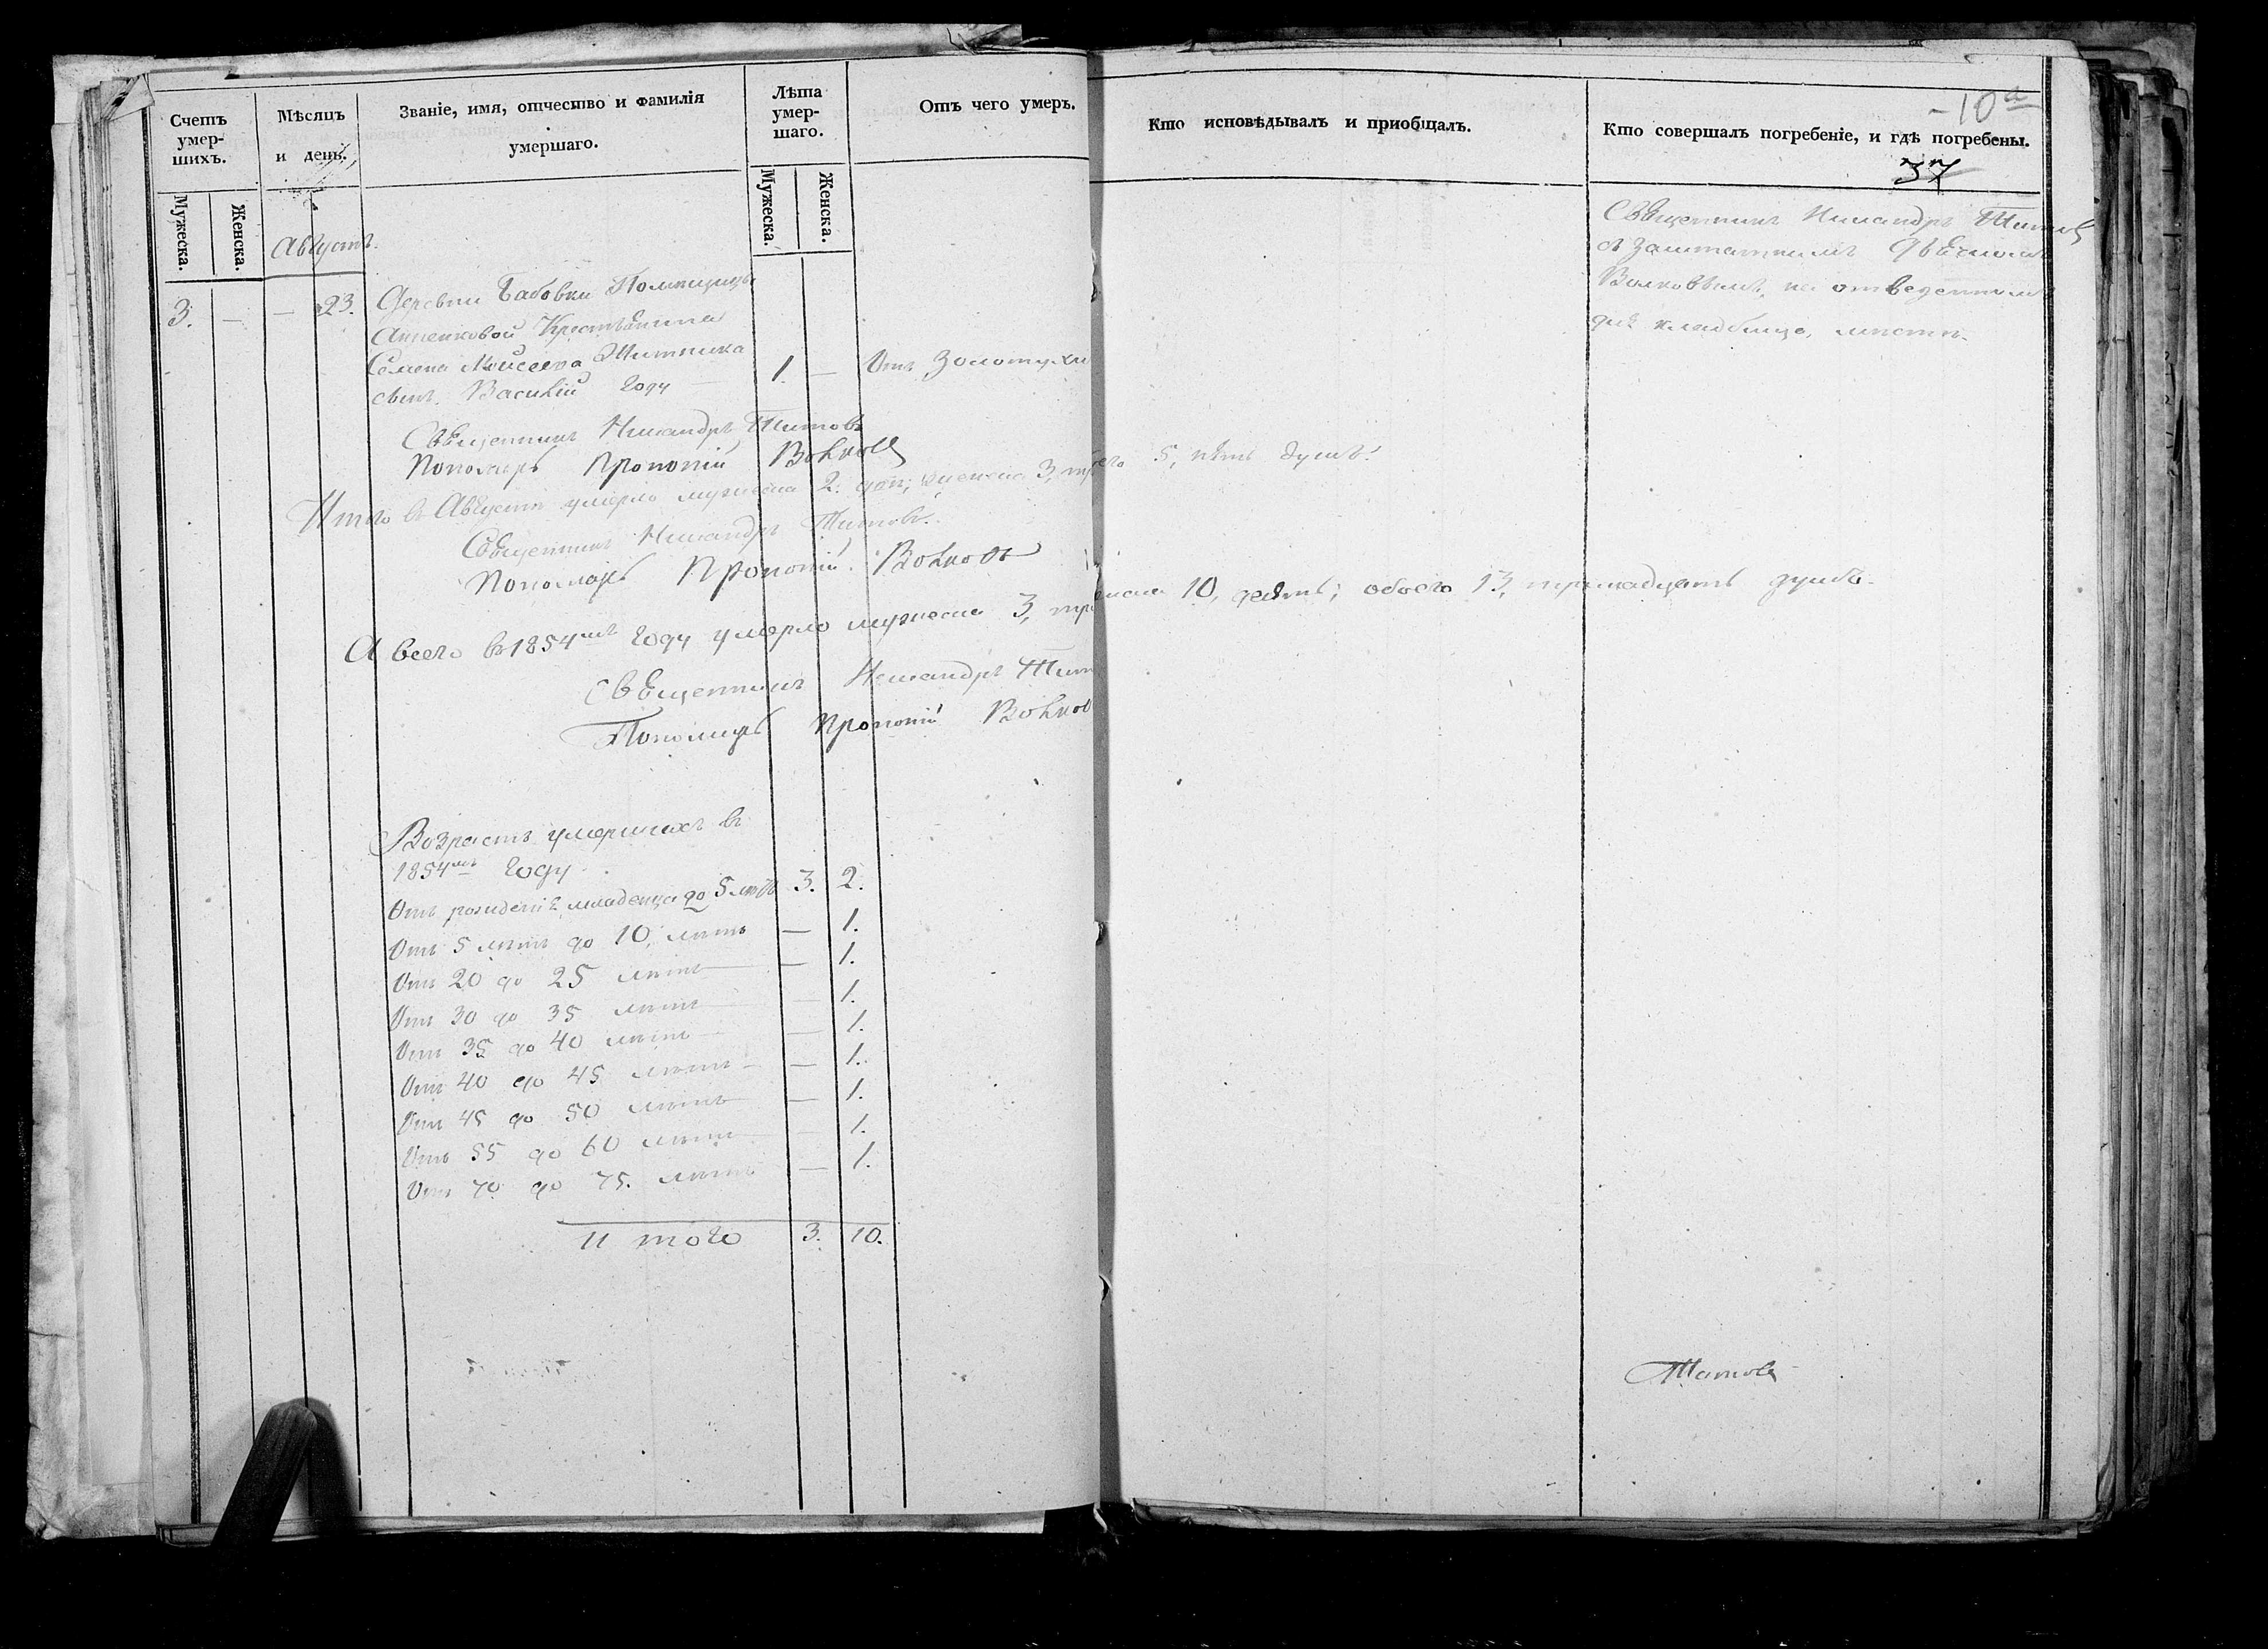 Счетъ умер-
шихъ.
Мужеска.
Женска.
Мѣсяцъ
и день.
Званіе, имя, отчество и фамилія
умершаго.
Лѣта
умер-
шаго.
Мужеска.
Женска.
Отъ чего умеръ.
Кто исповѣдывалъ и приобщалъ.
Кто совершалъ погребеніе, и гдѣ погребены.
-10а
37
Августъ.
3. — — 23.
Деревни Бабовки Помѣщицы
Анненковой Крестьянина
Семена Моисеева Житника
сынъ Василій году — 1. — Отъ золотухи
Священникъ Никандръ Титовъ
съ заштатнымъ Дьячкомъ
Волковымъ, на отведенномъ
для кладбища, мѣстѣ.
Священникъ Никандръ Титовъ
Пономарь Прокопій Волковъ
Итого въ Августѣ умерло мужеска 2. два; женска 3, три 5, пять душъ.
Священникъ Никандръ Титовъ.
Пономарь Прокопій Волковъ
А всего въ 1854мъ году умерло мужеска 3, три 10, десять; обоего 13, тринадцать душъ.
Священникъ Никандръ Тит
Пономарь Прокопій Волков
Возрастъ умершихъ въ
1854мъ году
Отъ рожденія младенца до 5 лѣтъ 3. 2.
Отъ 5 лѣтъ до 10, лѣтъ — 1.
Отъ 20 до 25 лѣтъ — 1.
Отъ 30 до 35 лѣтъ — 1.
Отъ 35 до 40 лѣтъ — 1.
Отъ 40 до 45 лѣтъ — 1.
Отъ 45 до 50 лѣтъ — 1.
Отъ 55 до 60 лѣтъ — 1.
Отъ 70 до 75. лѣтъ — 1.
Итого 3. 10.
Титовъ